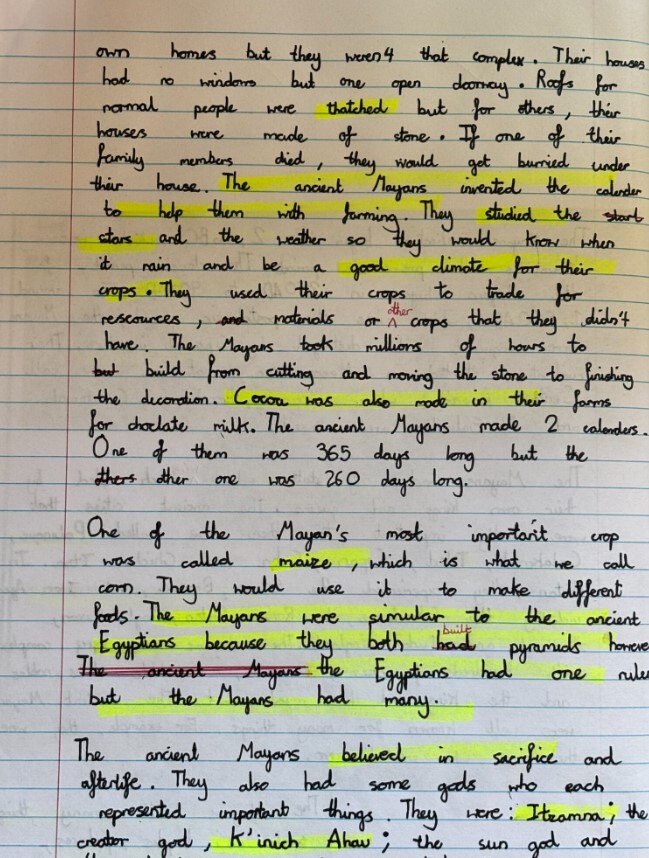 own homes but they weren4 that complex. Their houses
had no windows but one open doorway. Roofs for
normal people were thatched but for others, their
houses were made of stone. If one of their
family members died, they would get burried under
their house. The ancient Mayans invented the calender
to help them with farming. They studied the start
stars and the weather so they would know when
it rain and be a good climate for their
crops. They used their crops to trade for
rescources, and materials or other crops that they didn't
have. The Mayans took millions of hours to
but build from cutting and moving the stone to finishing
the decoration. Cocoa was also made in their farms
for choclate milk. The ancient Mayans made 2 calenders.
One of them was 365 days long but the
others other one was 260 days long.
One of the Mayan's most important crop
was called maize, which is what we call
corn. They would use it to make different
foods. The Mayans were simular to the ancient
Egyptians because they both had built pyramids however
The ancient Mayans the Egyptians had one ruler
but the Mayans had many.
The ancient Mayans believed in sacrifice and
afterlife. They also had some gods who each
represented important things. They were: Itzamna; the
creator god, K'inich Ahau; the sun god and